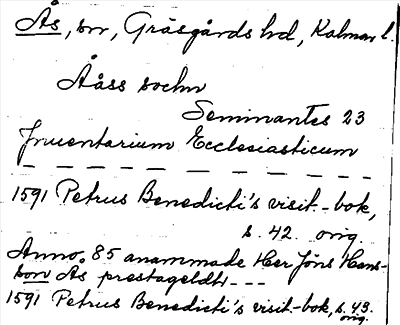 Ås, sn, Gräsgårds hd, Kalmar l.
Ååss sochn
Seminantes 23
Inuentarium Ecclesiasticum
1591 Petrus Benedicti's visit.-bok,
s. 42. orig.
Anno. 85 anammade Her Jöns Hans-
son Ås prestageldt ---
1591 Petrus Benedicti's visit-bok, s. 43.
orig.